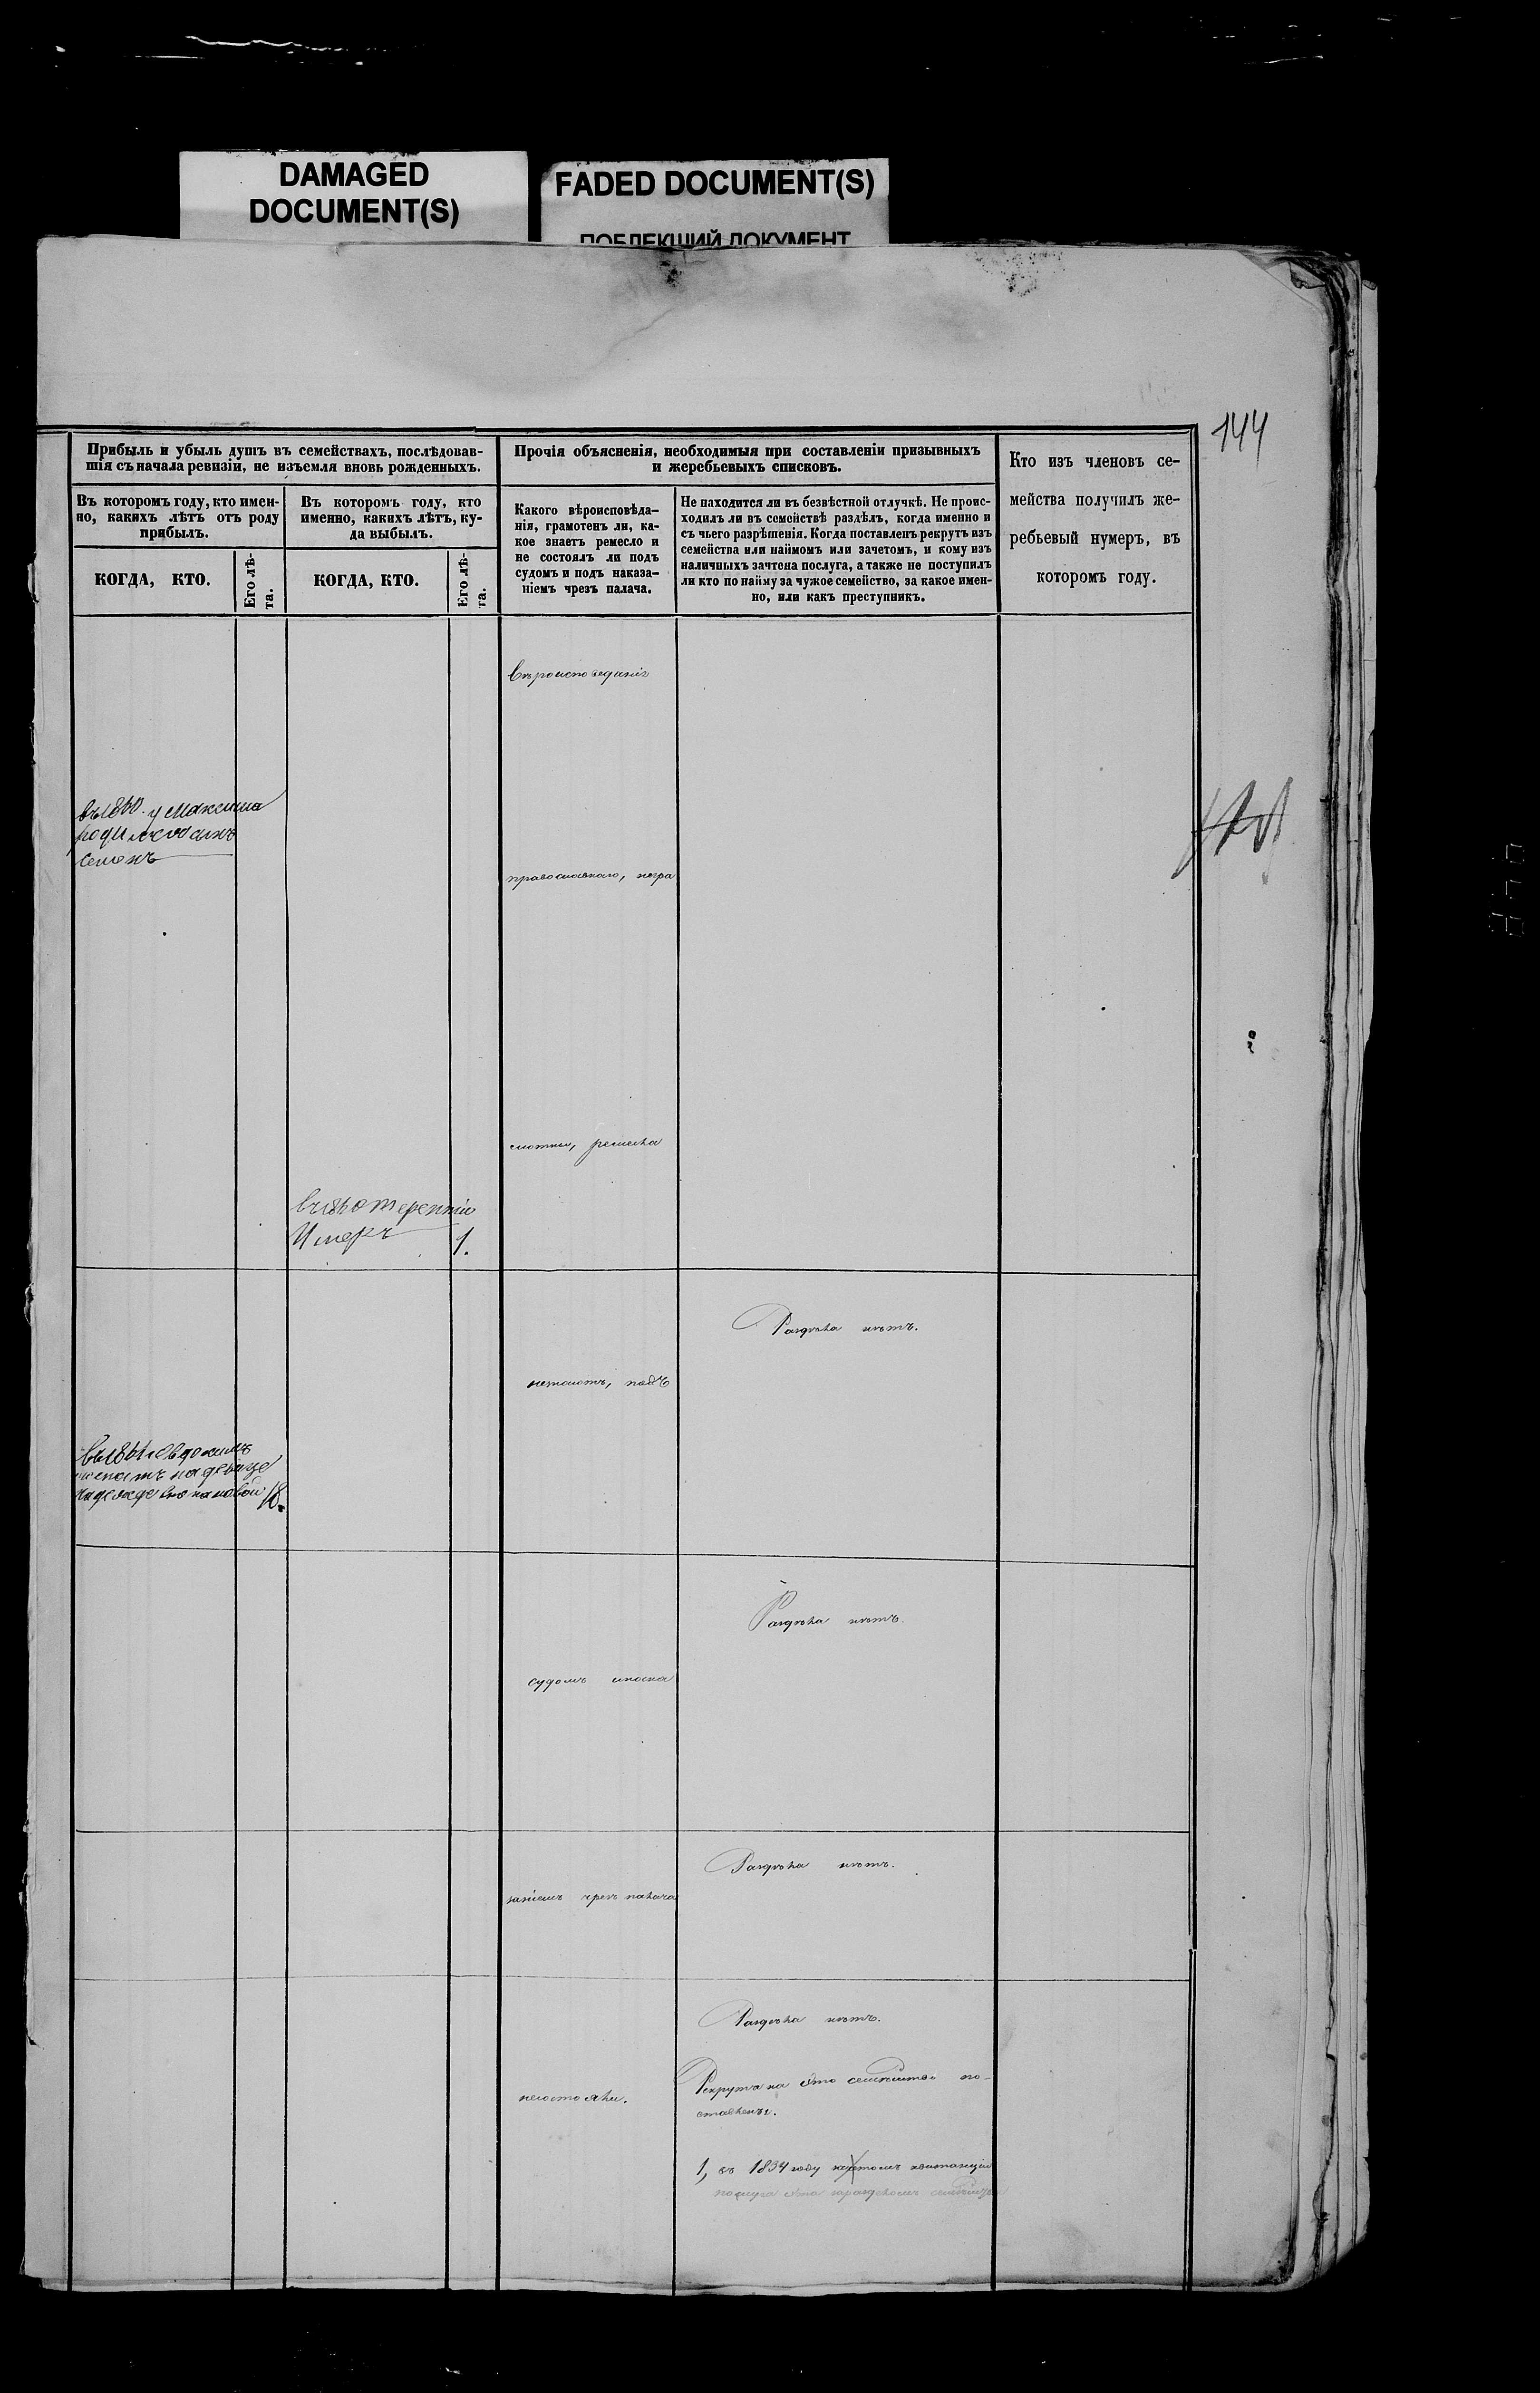 DAMAGED
DOCUMENT(S)
FADED DOCUMENT(S)
ПОБЛЕКШИЙ ДОКУМЕНТ
144
Прибыль и убыль душъ въ семействахъ, послѣдовав-
шія съ начала ревизіи, не изъемля вновь рожденныхъ.
Прочія объясненія, необходимыя при составленіи призывныхъ
и жеребьевыхъ списковъ.
Кто изъ членовъ се-
мейства получилъ же-
ребьевый нумеръ, въ
которомъ году.
Въ которомъ году, кто имен-
но, какихъ лѣтъ отъ роду
прибылъ.
Въ которомъ году, кто
именно, какихъ лѣтъ, ку-
да выбылъ.
Какого вѣроисповѣда-
нія, грамотенъ ли, ка-
кое знаетъ ремесло и
не состоялъ ли подъ
судомъ и подъ наказа-
ніемъ чрезъ палача.
Не находится ли въ безвѣстной отлучкѣ. Не проис-
ходилъ ли въ семействѣ раздѣлъ, когда именно и
съ чьего разрѣшенія. Когда поставленъ рекрутъ изъ
семейства или наймомъ или зачетомъ, и кому изъ
наличныхъ зачтена послуга, а также не поступилъ
ли кто по найму за чужое семейство, за какое имен-
но, или какъ преступникъ.
КОГДА, КТО.
Его лѣ-
та.
КОГДА, КТО.
Его лѣ-
та.
Вѣроисповеданія
у Максима
родился сынъ
Семенъ
православнаго, негра
мотны, ремесла
Терентій
Умеръ 1.
Раздѣла нѣтъ.
незнаютъ, подъ
Евдокимъ
женатъ на девице
18.
Раздѣла нѣтъ.
судомъ инака
Раздѣла нѣтъ.
заніемъ чрезъ палача
Раздѣла нѣтъ.
Рекрута на это семѣйство по-
ставлены.
несостояли.
1, въ 1834 году квитанціи